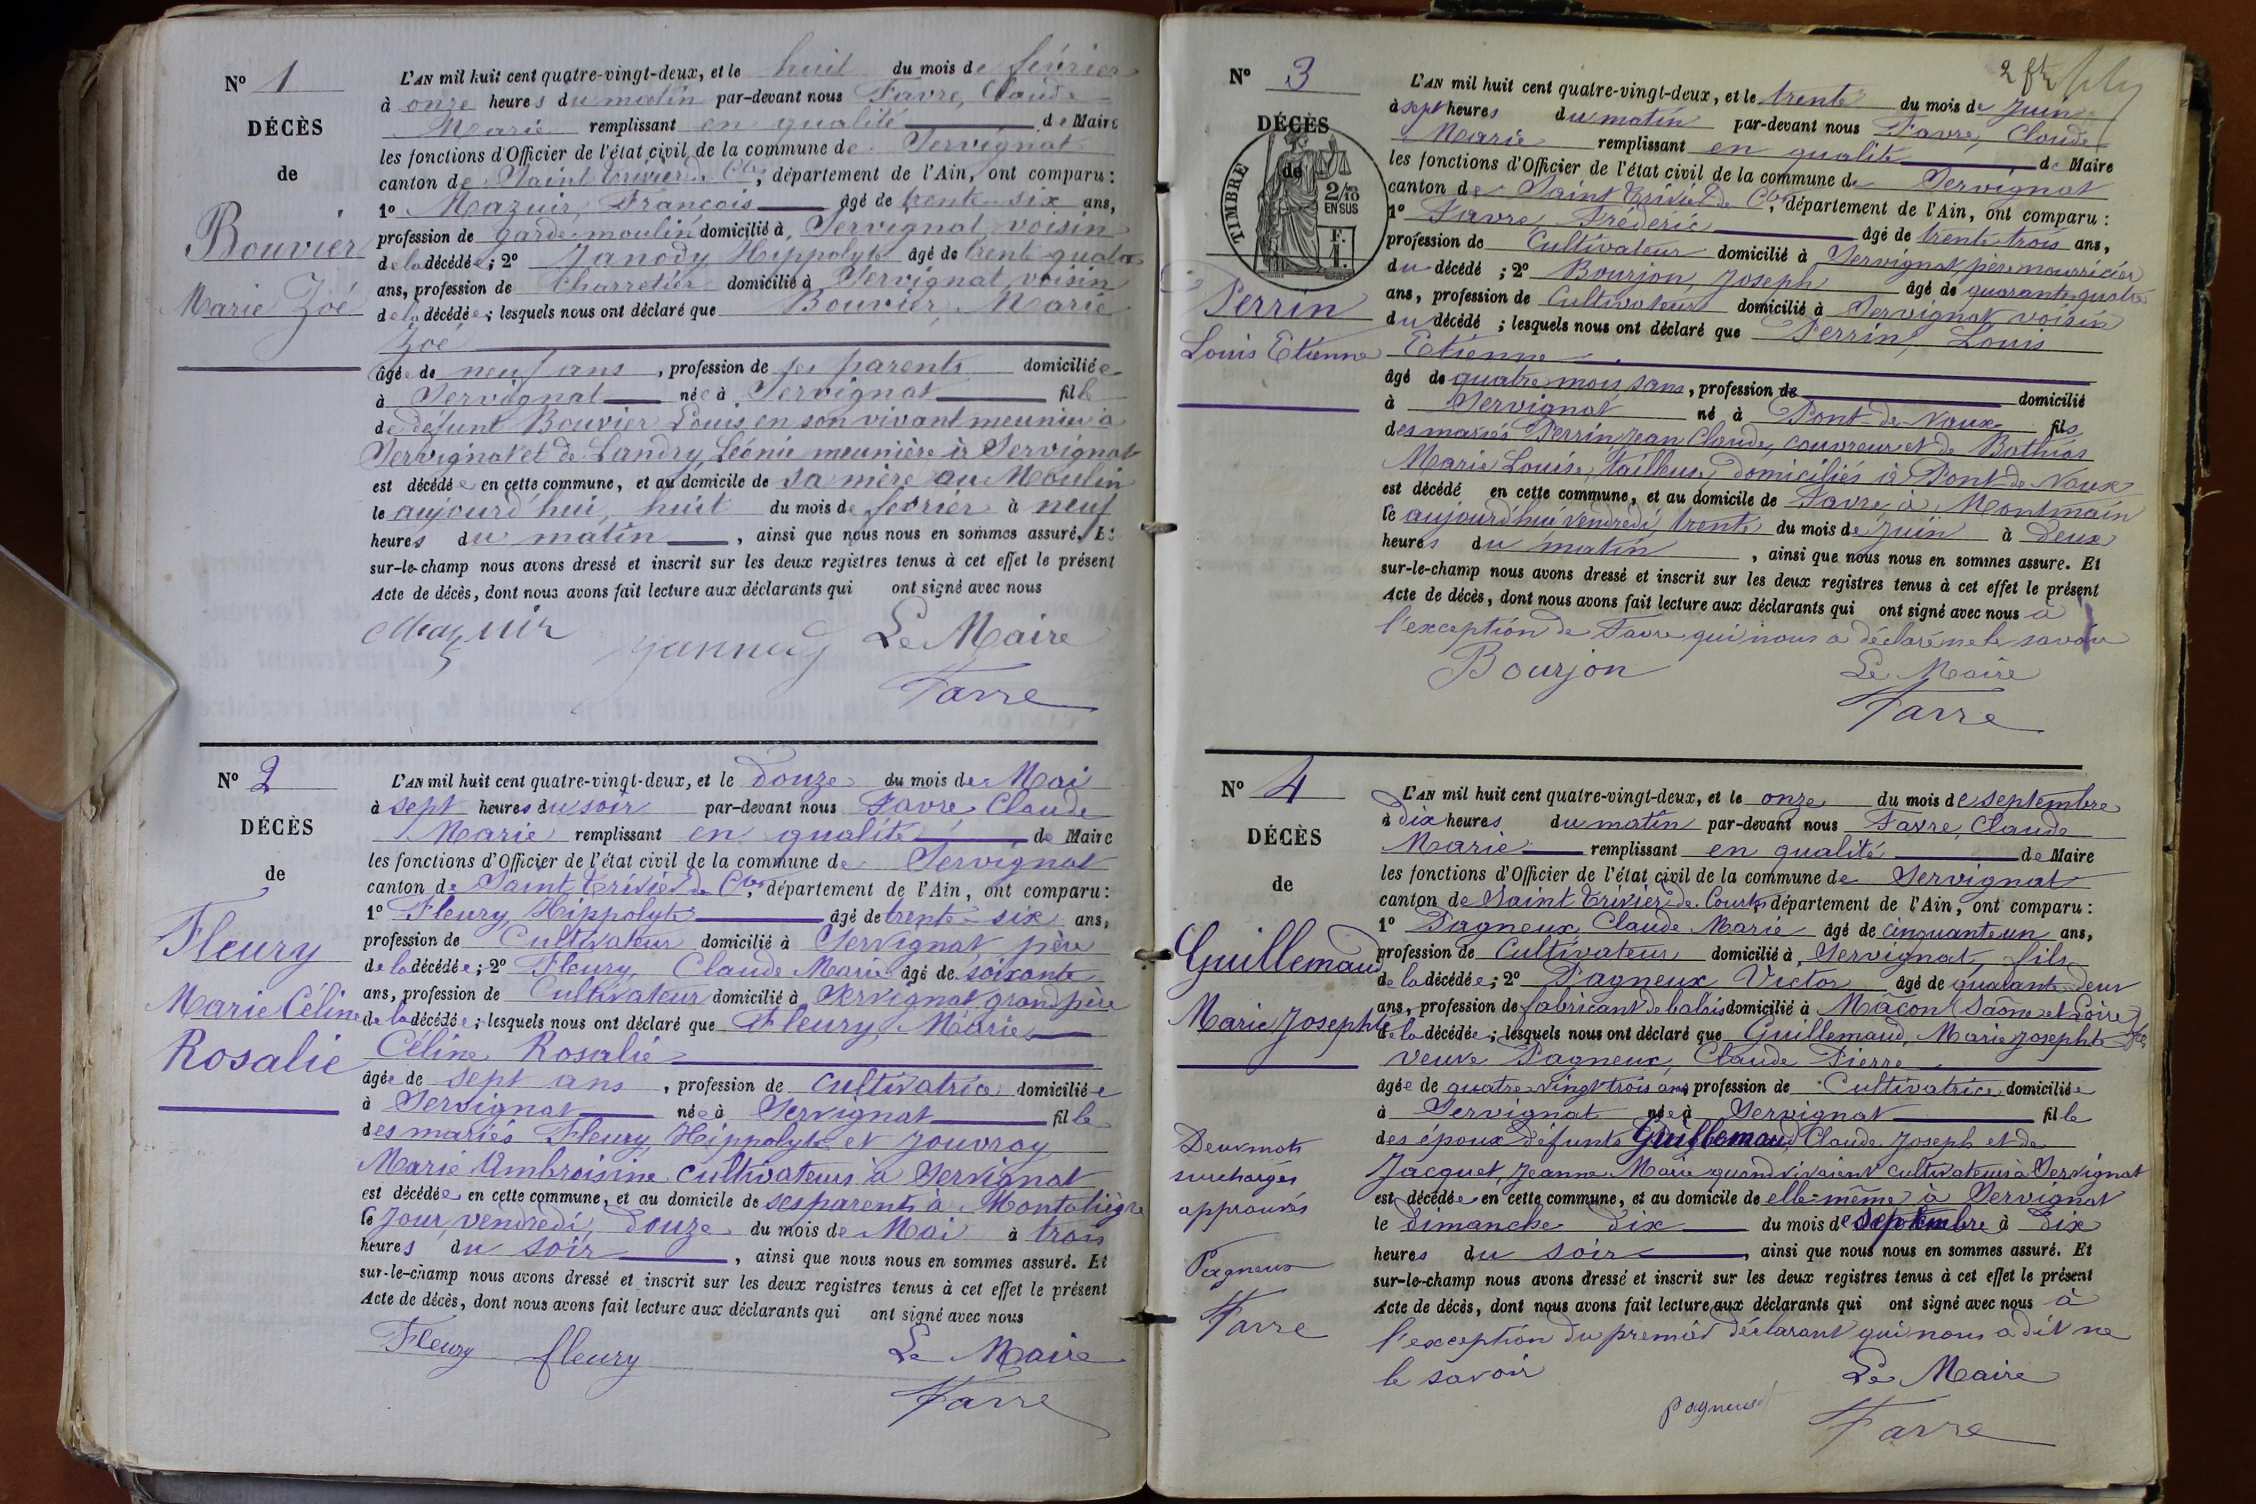 N° 1
DÉCÈS
de
Bouvier
Marie Zoé
L'AN mil huit cent quatre-vingt-deux, et le huit du mois de février
à onze heures du matin par-devant nous Favre, Claude
Marie remplissant en qualité de Maire
les fonctions d'Officier de l'état civil de la commune de Servignat
canton de Saint Trivier de Ctes, département de l'Ain, ont comparu :
1° Mazuir, François âgé de trente-six ans,
profession de Garde-moulin domicilié à Servignat, voisin
de la décédée ; 2° Janody Hippolyte âgé de trente quatre
ans, profession de Charretier domicilié à Servignat, voisin
de la décédée ; lesquels nous ont déclaré que Bouvier, Marie
Zoé
âgée de neuf ans, profession de ses parents domiciliée
à Servignat née à Servignat fille
de défunt Bouvier Louis, en son vivant meunier à
Servignat et de Landry, Léonie meunière à Servignat
est décédée en cette commune, et au domicile de sa mère au Moulin
le aujourd'hui, huit du mois de février à neuf
heures du matin, ainsi que nous nous en sommes assuré. Et
sur-le-champ nous avons dressé et inscrit sur les deux registres tenus à cet effet le présent
Acte de décès, dont nous avons fait lecture aux déclarants qui ont signé avec nous
Mazuir Le Maire
Favre
N° 2
DÉCÈS
de
Fleury
Marie Céline
Rosalie
L'AN mil huit cent quatre-vingt-deux, et le douze du mois de Mai
à sept heures du soir par-devant nous Favre, Claude
Marie remplissant en qualité de Maire
les fonctions d'Officier de l'état civil de la commune de Servignat
canton de Saint Trivier de Ctes, département de l'Ain, ont comparu :
1° Fleury, Hippolyte âgé de trente-six ans,
profession de Cultivateur domicilié à Servignat, père
de la décédée ; 2° Fleury, Claude Marie âgé de soixante
ans, profession de Cultivateur domicilié à Servignat, grand père
de la décédée ; lesquels nous ont déclaré que Fleury, Marie
Céline Rosalie
âgée de sept ans, profession de cultivatrice domiciliée
à Servignat née à Servignat fille
des mariés Fleury, Hippolyte et Jouvray
Marie Ambroisine cultivateurs à Servignat
est décédée en cette commune, et au domicile de ses parents à Montaliègre
le jour, vendredi, douze du mois de Mai à trois
heures du soir, ainsi que nous nous en sommes assuré. Et
sur-le-champ nous avons dressé et inscrit sur les deux registres tenus à cet effet le présent
Acte de décès, dont nous avons fait lecture aux déclarants qui ont signé avec nous
Fleury fleury Le Maire
Favre
N° 3
DÉCÈS
de
TIMBRE
2/10
EN SUS
Perrin
Louis Etienne
L'AN mil huit cent quatre-vingt-deux, et le trente du mois de Juin
à sept heures du matin par-devant nous Favre, Claude
Marie remplissant en qualité de Maire
les fonctions d'Officier de l'état civil de la commune de Servignat
canton de Saint Trivier de Ctes, département de l'Ain, ont comparu :
1° Favre, Frédéric âgé de trente-trois ans,
profession de Cultivateur domicilié à Servignat, père nourricier
du décédé ; 2° Bourjon, Joseph âgé de quarante-quatre
ans, profession de Cultivateur domicilié à Servignat voisin
du décédé ; lesquels nous ont déclaré que Perrin, Louis
Etienne
âgé de quatre mois, sans, profession de domicilié
à Servignat né à Pont-de-Vaux fils
des mariés Perrin Jean Claude, couvreur et de Bathias
Marie Louise, tailleuse, domiciliés à Pont-de-Vaux
est décédé en cette commune, et au domicile de Favre, à Montmain
le aujourd'hui vendredi, trente du mois de juin à deux
heures du matin, ainsi que nous nous en sommes assuré. Et
sur-le-champ nous avons dressé et inscrit sur les deux registres tenus à cet effet le présent
Acte de décès, dont nous avons fait lecture aux déclarants qui ont signé avec nous à
l'exception de Favre qui nous a déclaré ne le savoir
Bourjon Le Maire
Favre
N° 4
DÉCÈS
de
Guillemaud
Marie Josephte
Deux mots
surchargés
approuvés
Pagneux
Favre
L'AN mil huit cent quatre-vingt-deux, et le onze du mois de septembre
à dix heures du matin par-devant nous Favre, Claude
Marie remplissant en qualité de Maire
les fonctions d'Officier de l'état civil de la commune de Servignat
canton de Saint Trivier de Courtes, département de l'Ain, ont comparu :
1° Pagneux, Claude Marie âgé de cinquante un ans,
profession de Cultivateur domicilié à Servignat, fils
de la décédée ; 2° Pagneux Victor âgé de quarante-deux
ans, profession de fabricant de balais domicilié à Mâcon (Saône et Loire)
de la décédée ; lesquels nous ont déclaré que Guillemaud, Marie Josephte
veuve Pagneux, Claude Pierre
âgée de quatre-vingt-trois ans, profession de Cultivatrice domiciliée
à Servignat née à Servignat fille
des époux défunts Guillemaud, Claude Joseph et de
Jacquet, Jeanne Marie quand vivaient cultivateurs à Servignat
est décédée en cette commune, et au domicile de elle-même à Servignat
le dimanche dix du mois de septembre à dix
heures du soir, ainsi que nous nous en sommes assuré. Et
sur-le-champ nous avons dressé et inscrit sur les deux registres tenus à cet effet le présent
Acte de décès, dont nous avons fait lecture aux déclarants qui ont signé avec nous à
l'exception du premier déclarant qui nous a dit ne
le savoir Le Maire
pagneux Favre